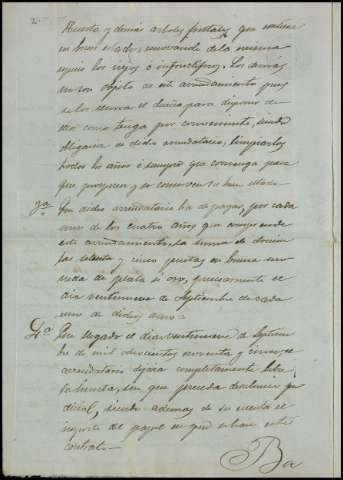 2.
Huerta y demás arboles frutales que contiene
en buen estado, renovando de la misma
los viejos é infructiferos. Los demas
no son objeto de este arrendamiento pues
se los reserva el dueño para disponer de
ellos como tenga por conveniente, siendo
obligacion de dicho arrendatario, limpiarlos
todos los años ó siempre que convenga para
que prosperen y se conserven en buen estado
3ª Que dicho arrendatario ha de pagar, por cada
uno de los cuatro años que comprende
este arrendamiento, la suma de doscien
tas setenta y cinco pesetas en buena mo
neda de plata ú oro, precisamente el
dia veintinueve de Septiembre de cada
uno de dichos años
4ª Que llegado el dia veintinueve de Septiem
bre de mil ochocientos noventa y cinco, el
arrendatario dejará completamente libre
la huerta, sin que preceda desahucio ju
dicial, siendo ademas de su cuenta el
importe de papel en que se hace este
contrato